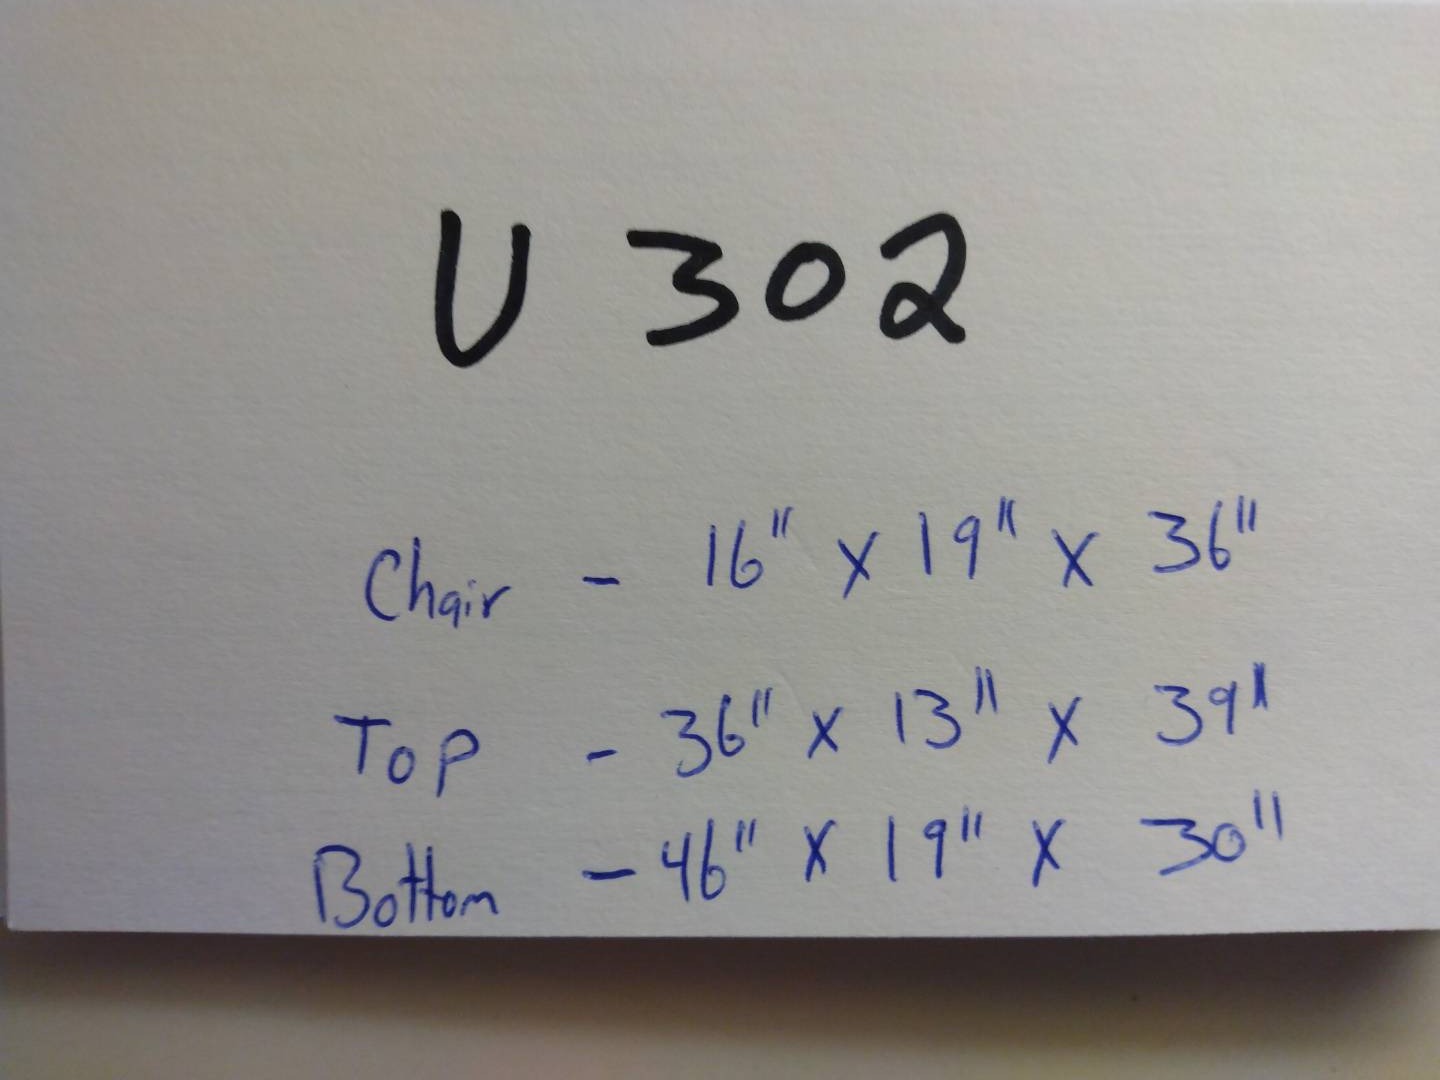 U 302
Chair - 16" x 19" x 36"
Top - 36" x 13" x 39"
Bottom - 46" x 19" x 30"